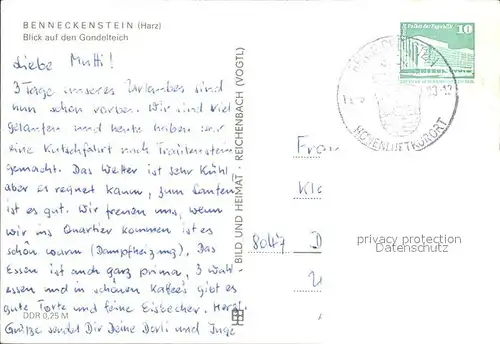 BENNECKENSTEIN (Harz)
Blick auf den Gondelteich
Liebe Mutti!
3 Tage unseres Urlaubes sind
nun schon vorbei. Wir sind viel
gelaufen und heute haben wir
eine Kutschfahrt nach Trautenstein
gemacht. Das Wetter ist sehr kühl,
aber es regnet kaum, zum Laufen
ist es gut. Wir freuen uns, wenn
wir ins Quartier kommen ist es
schön warm (Dampfheizung). Das
Essen ist auch ganz prima, 3 Wahl-
essen und in schönen Kaffee's gibt es
gute Torte und feine Eisbecher. Herzl.
Grüße sendet Dir Deine Dorli und Inge
DDR 0,25 M
BILD UND HEIMAT · REICHENBACH (VOGTL)
10
HÖHENLUFTKURORT
Frau
Kl
8047 D
privacy protection
Datenschutz